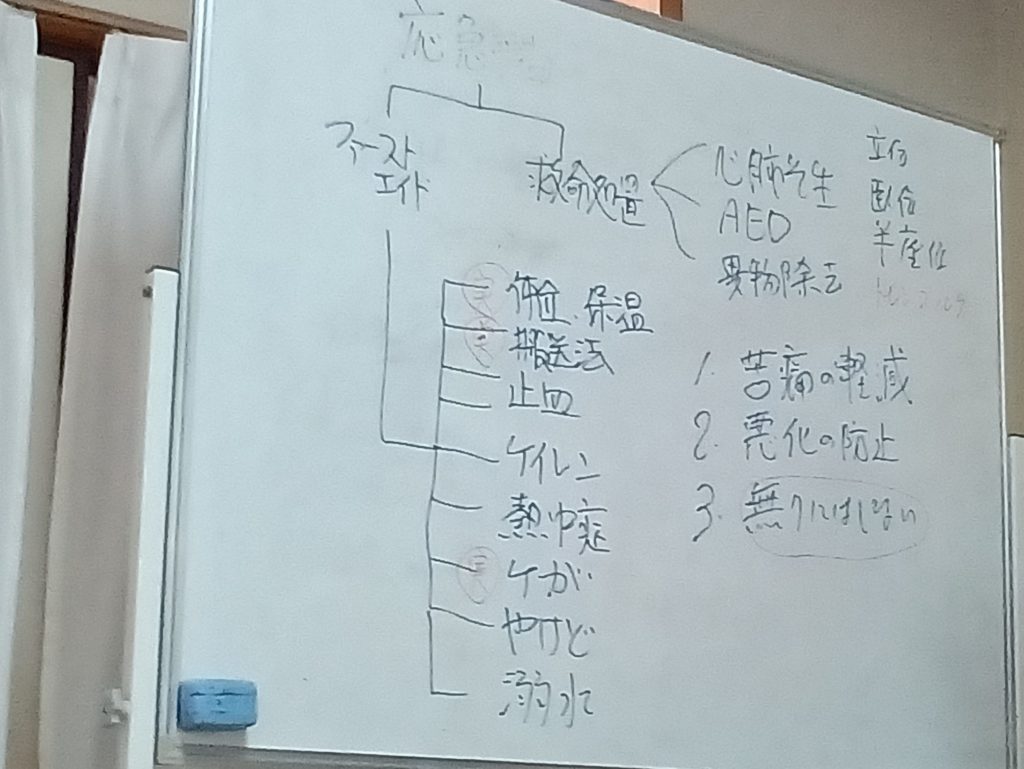 応急
ファースト
エイド
救命処置
心肺蘇生
AED
異物除去
立位
臥位
半座位
実 体位、保温
実 搬送法
止血
ケイレン
熱中症
実 ケガ
やけど
溺水
1. 苦痛の軽減
2. 悪化の防止
3. 無